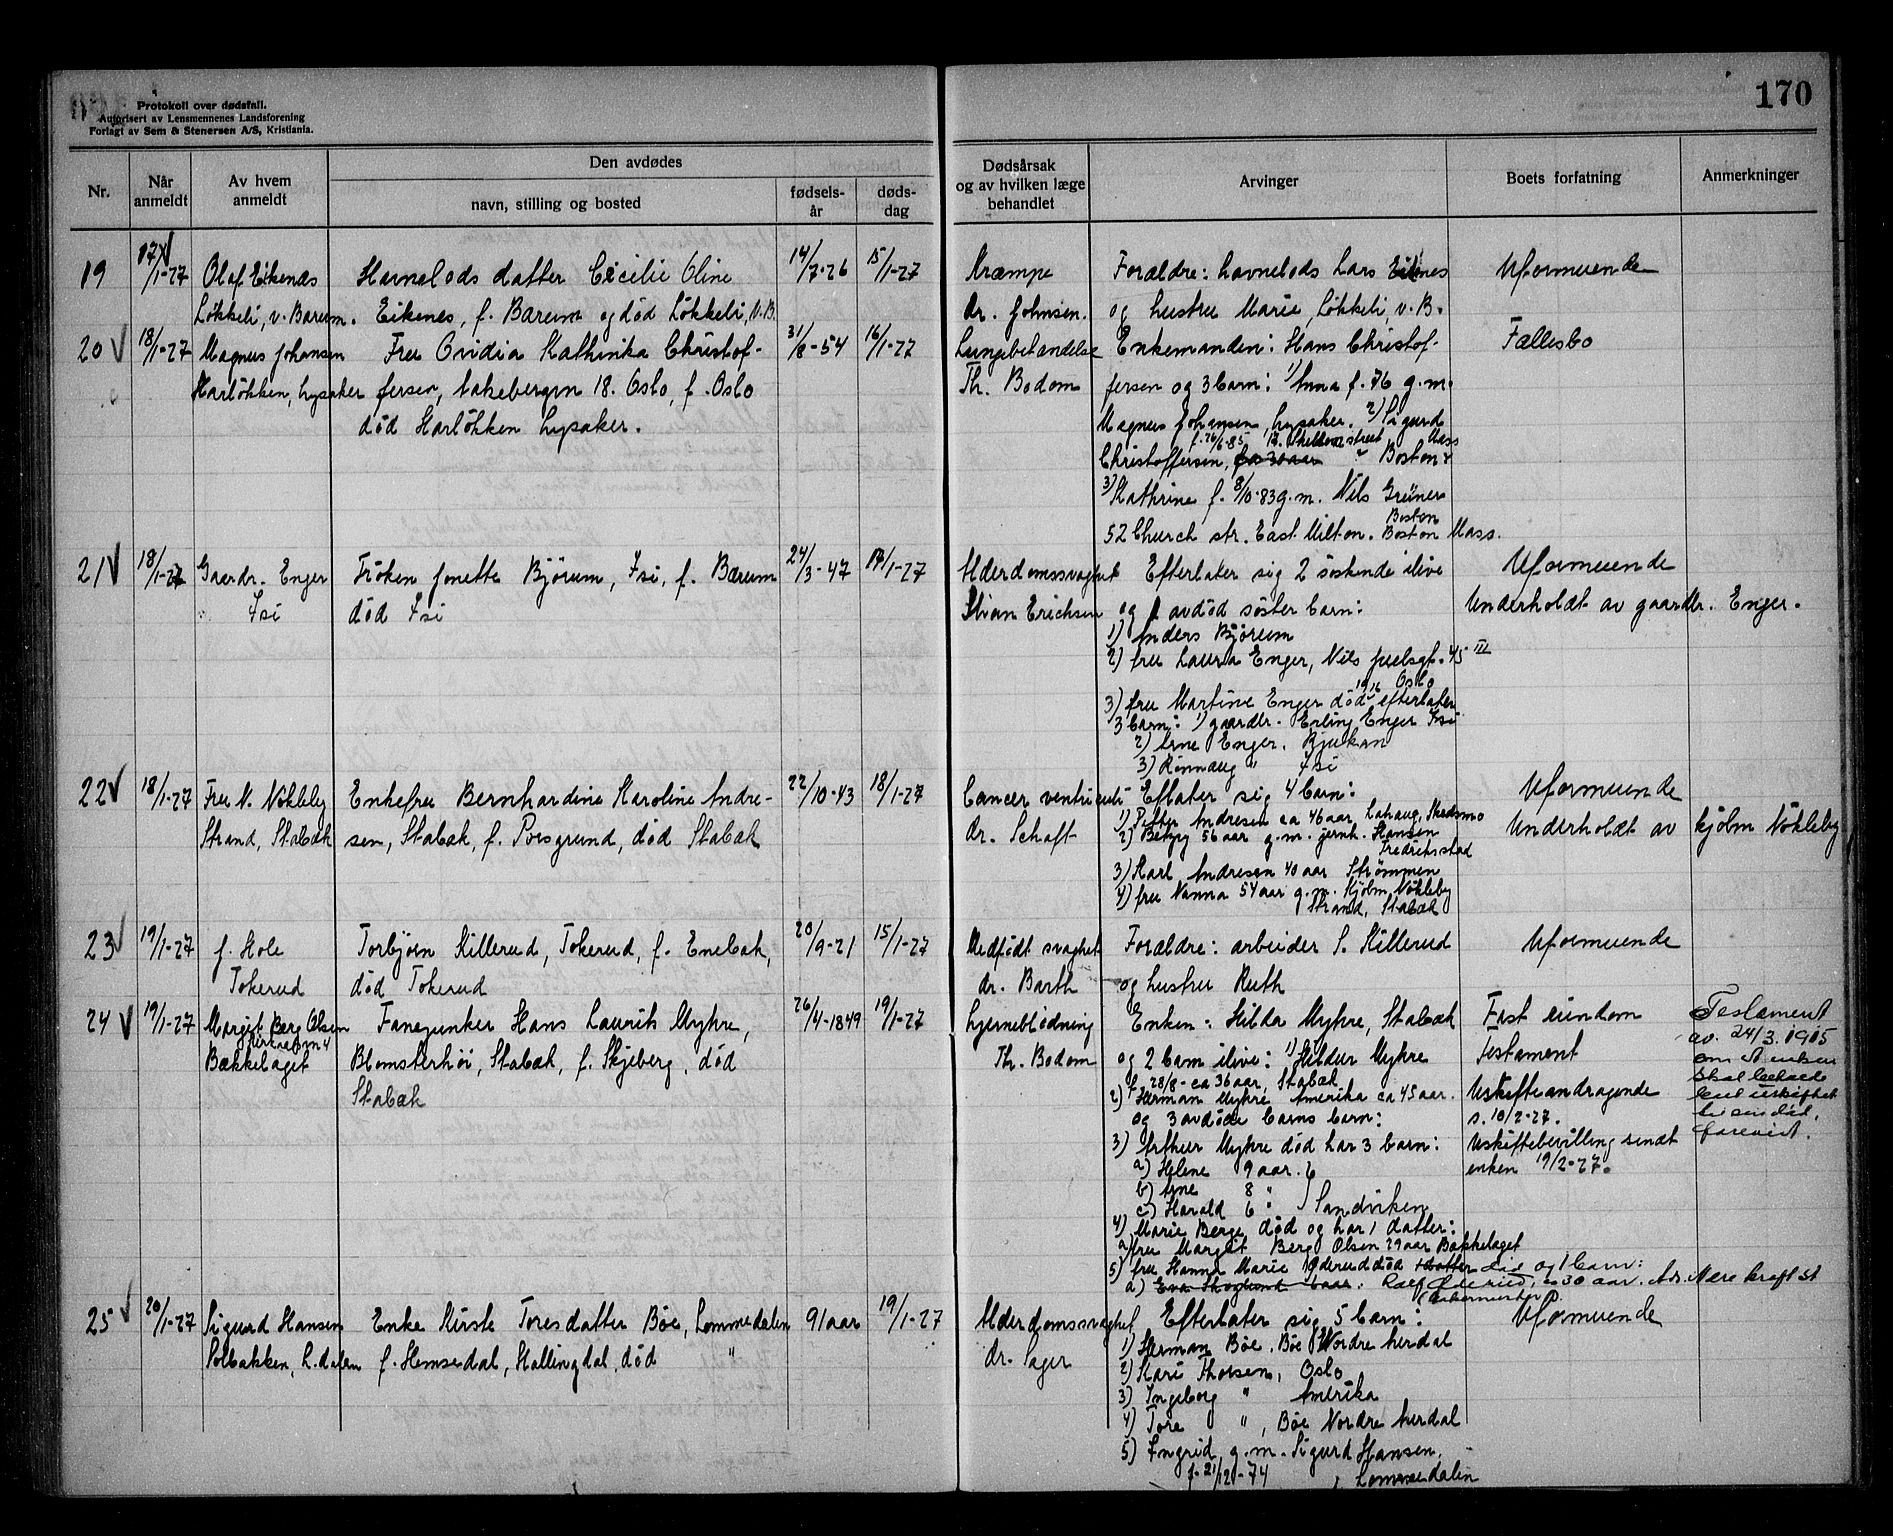 Protokoll over dødsfall.
Autorisert av Lensmennenes Landsforening
Forlagt av Sem & Stenersen A/S, Kristiania.
170
Nr.
Når anmeldt
Av hvem anmeldt
Den avdødes
navn, stilling og bosted
fødsels-år
døds-dag
Dødsårsak og av hvilken læge behandlet
Arvinger
Boets forfatning
Anmerkninger
19 17/1-27 Olaf Eikenæs Havnelods datter Cecilie Oline 14/7-26 15/1-27 Krampe Forældre: havnelods Lars Eikenes Uformuende
Løkkeli, v. Bærum. Eikenes, f. Bærum og død Løkkeli, V.B. dr. Johnsen. og hustru Marie, Løkkeli, v.B.
20 18/1-27 Magnus Johansen Fru Ovidia Kathinka Christof- 31/8-54 16/1-27 Lungebetændelse Enkemanden: Hans Christof- Fællesbo
Harløkken, Lysaker fersen, Akebergvn 18. Oslo, f. Oslo Th. Bodom fersen og 3 barn: 1) Anna f. 76 g.m.
død Harløkken Lysaker. Magnus Johansen, Lysaker. 2) Sigurd
f. 26/6-85 street Mass
Christoffersen, ca 30 aar Boston
3) Kathrine f. 8/10-83 g.m. Nils Grüner
Boston
52 Church str. East Milton. Boston Mass.
21 18/1-27 Gaardbr. Enger Frøken Jonette Bjørum, Isi, f. Bærum 24/3-47 17/1-27 Alderdomssvaghet Efterlater sig 2 søskende ilive Uformuende
Isi død Isi Stian Erichsen og 1 avdød søster barn: Underholdt av gaardbr. Enger.
1) Anders Bjørum
2) fru Laura Enger, Nils Juelsgt. 45 III
1916 Oslo
3) fru Martine Enger død efterlater
3 barn: 1) gaardbr. Erling Enger Isi
2) Arne Enger, Rjukan
3) Rønnaug " Isi
22 18/1-27 Fru N. Nøkleby Enkefru Bernhardine Karoline Andre- 22/10-43 18/1-27 Cancer ventriculi Eflater sig 4 barn: Uformuende
Strand, Stabæk sen, Stabæk, f. Porsgrund, død Stabæk dr. Schaft 1) Petter Andresen ca 46 aar, Lahaug, Skedsmo Underholdt av kjøbm Nøkleby
2) Betzy 56 aar g.m. jernh. Hansen
Fredrikstad
3) Karl Andresen 40 aar Strømmen
4) fru Nanna 54 aar g.m. Kjøbm. Nøkleby
Strand, Stabæk
23 19/1-27 J. Hole Torbjørn Killerud, Tokerud, f. Enebak, 20/9-21 15/1-27 Medfødt svaghet Forældre: arbeider S. Killerud Uformuende
Tokerud død Tokerud dr. Barth og hustru Ruth
24 19/1-27 Margit Berg Olsen Fanejunker Hans Laurits Myhre, 26/4-1849 19/1-27 hjerneblødning Enken: Hilda Myhre, Stabæk Fast eiendom Testament
Bækkelaget Blomsterhøi, Stabæk, f. Skjeberg, død Th. Bodom og 2 barn ilive: 1) Hildur Myhre Testament av 24/3.1905
Stabæk f. 28/8- ca 36 aar, Stabæk om at enken
2) Herman Myhre Amerika ca 45 aar. Uskifteandragende skal beholde
og 3 avdøde barns barn: s. 10/2-27. boet uskiftet
3) Arthur Myhre død har 3 barn: Uskiftebevilling sendt til sin død,
a) Helene 9 aar. enken 19/2-27. forevist.
b) Arne 8 "
c) Harald 6 " Sandviken
4) Marie Berge død og har 1 datter:
a) fru Margit Berg Olsen 29 aar Bækkelaget
5) fru Hanna Marie Øderud død datter død og 1 barn:
a) Eva Skoglund 6 aar. Ralf Øderud, ca 30 aar. Adr. Nere kraft st
25 20/1-27 Sigurd Hansen Enke Kirsti Toresdatter Bøe, Lommedalen 91 aar 19/1-27 Alderdomssvaghet Efterlater sig 5 barn: Uformuende
Solbakken, L.dalen f. Hemsedal, Hallingdal, død " dr. Sager 1) Herman Bøe. Bøe Nordre herdal
2) Kari Thoresen, Oslo
3) Ingeborg " Amerika
4) Tore ", Bøe Nordre herdal
5) Ingrid g.m. Sigurd Hansen,
f. 21/12-74 Lommedalen